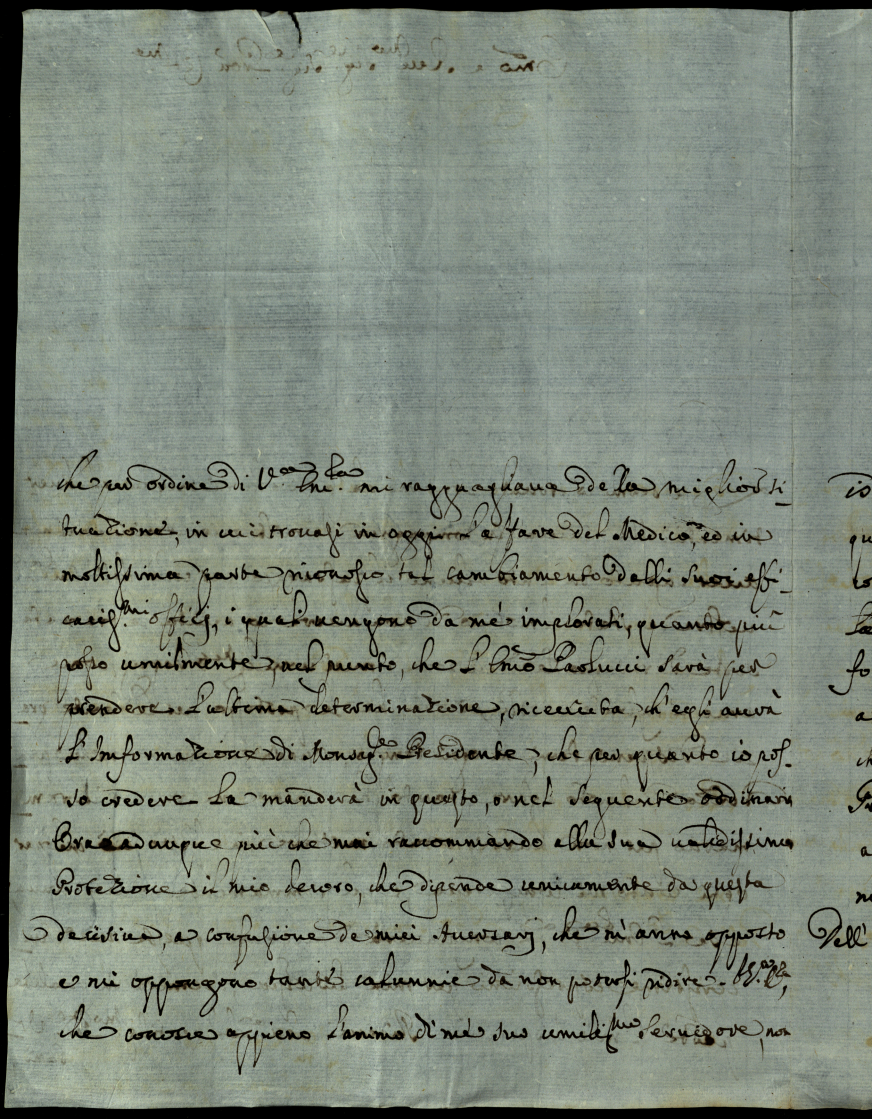 che per ordine di V.ra Em.za mi ragguagliava della miglior si-
tuazione, in cui trovasi in oggi l'affare del Medico, ed in
moltissima parte riconosco tal cambiamento dalli suoi effi-
caciss.mi offici, i quali vengono da mé implorati, quanto più
posso umilmente, nel punto, che l'Em̃o Paolucci sarà per
prendere l'ultima determinazione, ricevuta, ch'egli avrà
l'Informazione di Monsig.re Presidente, che per quanto io pos-
so credere la manderà in questo, o nel seguente ordinario
Ora adunque più che mai raccommando alla sua validissima
Protezione il mio decoro, che dipende unicamente da questa
decisiva, a confusione de miei Aversarj, che m'anno opposto
e mi oppongono tante calunnie da non potersi ridire. V.ra
che conosce appieno l'animo di mé suo umiliss.mo Servidore, non
io
qu
lo
fo
a
ch
a
Dell'